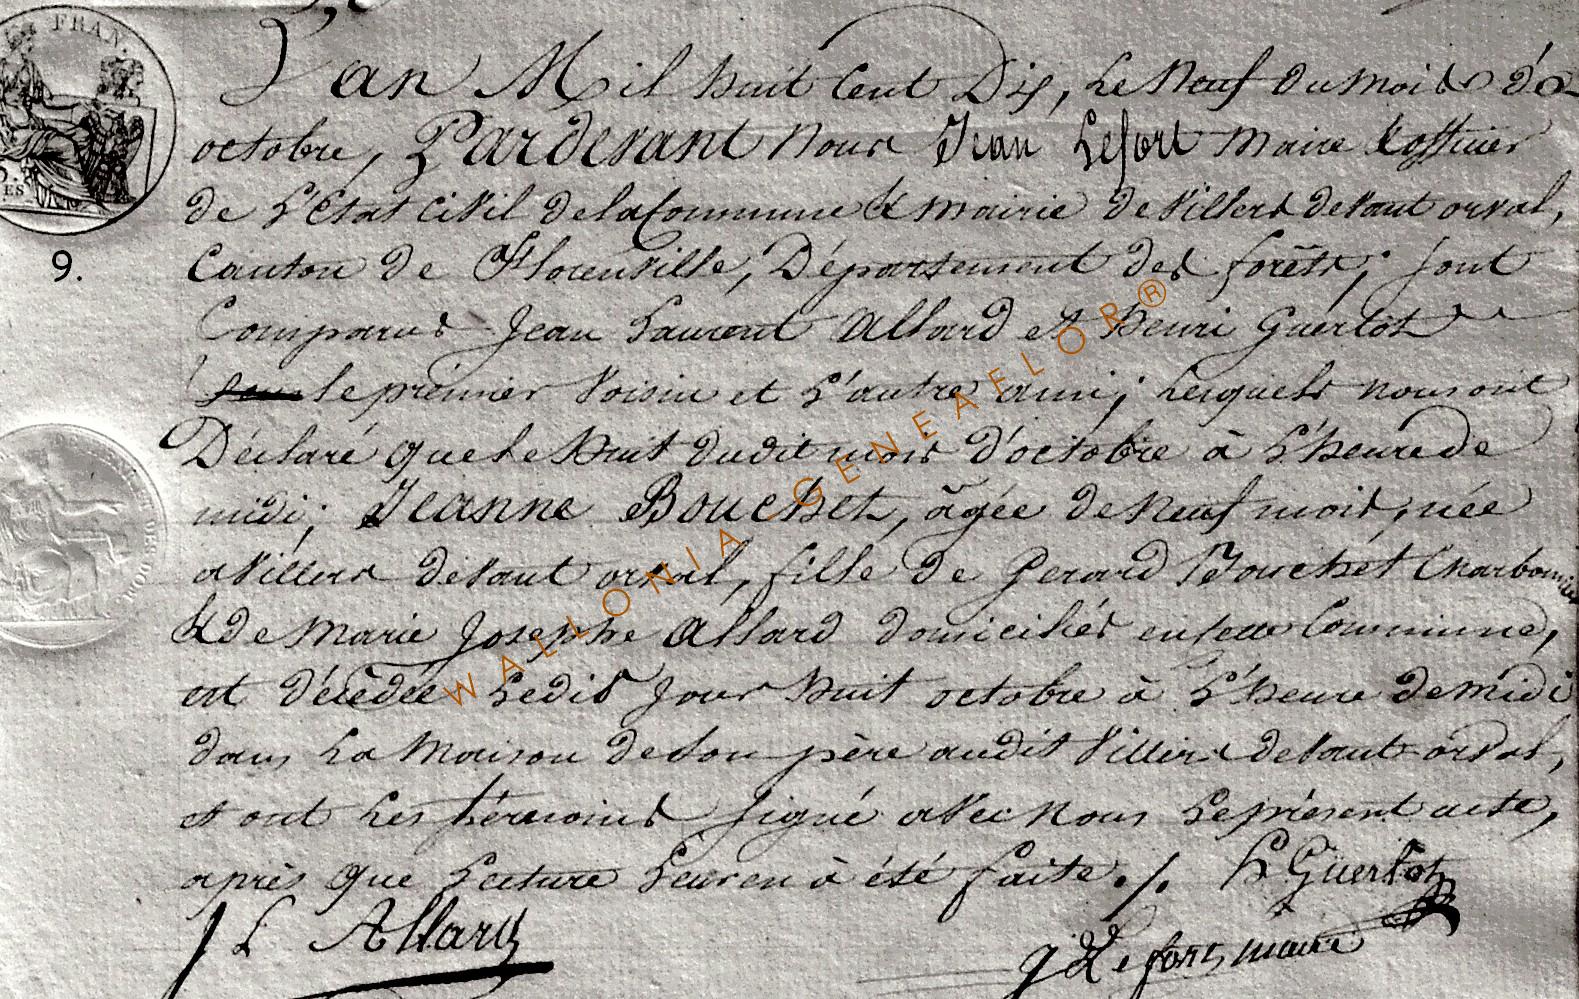 FRAN.
ES
9.
L'an Mil huit Cent Dix, Le Neuf du Mois d'
octobre, Pardevant Nous Jean Lefort Maire & officier
de L'Etat Civil de la Commune & Mairie de Villers devant orval,
Canton de Florenville, Département des forêts; sont
Comparus Jean Laurent Allard et henri Guerlot
le premier Voisin et L'autre ami; Lesquels nous ont
Déclaré que Le huit dudit mois d'octobre à L'heure de
midi; Jeanne Bouchet, agée de Neuf mois, née
a Villers devant orval, fille de Gerard Bouchet Charbonnier
& de Marie Josephe Allard domiciliés en cette Commune,
est décèdée Ledit Jour huit octobre à L'heure de midi
dans La Maison de son père audit Villers devant orval,
et ont Les témoins signé avec Nous Le présent acte,
après que Lecture Leur en à été faite ./. h Guerlot
J L Allard
Lefort maire
WALLONIA GENEAFLOR®